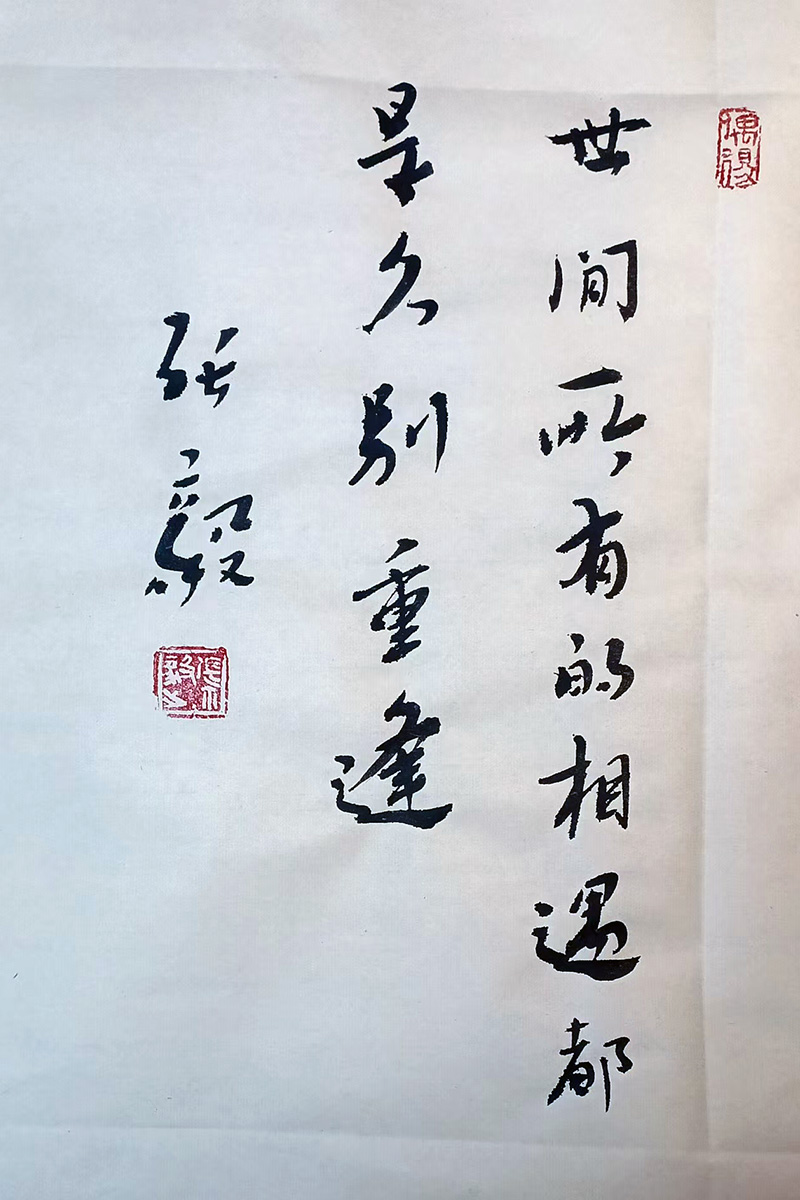 世间所有的相遇都
是久别重逢
张毅
偶得